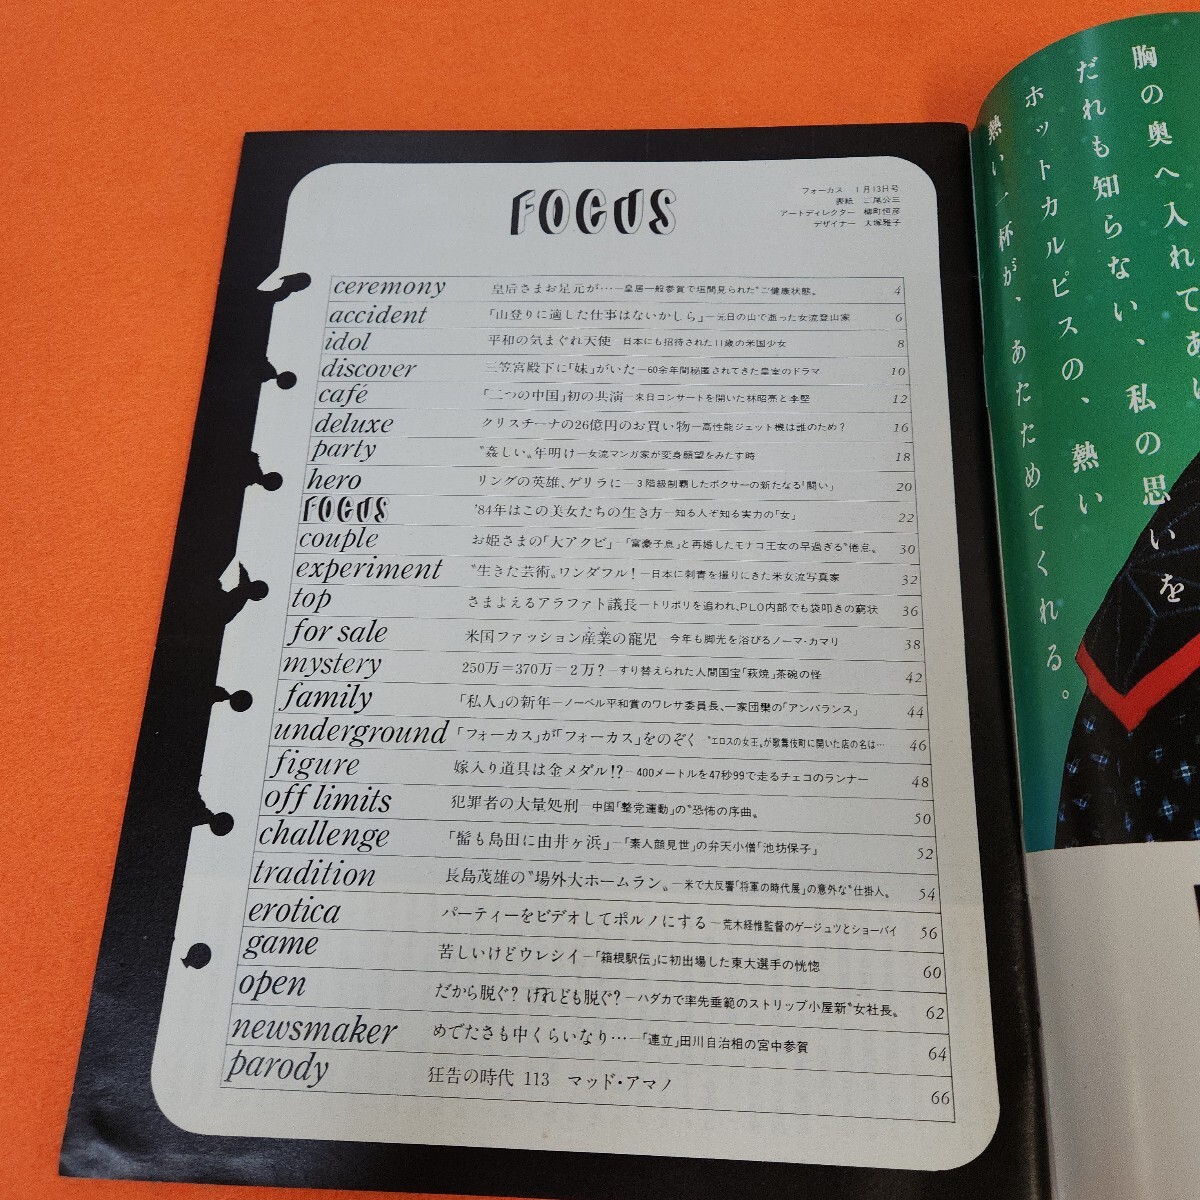 FOCUS
フォーカス 1月13日号
表紙 二尾公三
アートディレクター 柳町恒彦
デザイナー 大塚雅子
ceremony 皇后さまお足元が…―皇居一般参賀で垣間見られた〝ご健康状態〟 4
accident 「山登りに適した仕事はないかしら」―元日の山で逝った女流登山家 6
idol 平和の気まぐれ天使―日本にも招待された11歳の米国少女 8
discover 三笠宮殿下に「妹」がいた―60余年間秘匿されてきた皇室のドラマ 10
café 「二つの中国」初の共演―来日コンサートを開いた林昭亮と李堅 12
deluxe クリスチーナの26億円のお買い物―高性能ジェット機は誰のため? 16
party 〝姦しい〟年明け―女流マンガ家が変身願望をみたす時 18
hero リングの英雄、ゲリラに―3階級制覇したボクサーの新たなる「闘い」 20
FOCUS '84年はこの美女たちの生き方―知る人ぞ知る実力の「女」 22
couple お姫さまの「大アクビ」―「富豪子息」と再婚したモナコ王女の早過ぎる〝倦怠〟 30
experiment 〝生きた芸術〟ワンダフル!―日本に刺青を撮りにきた米女流写真家 32
top さまよえるアラファト議長―トリポリを追われ、PLO内部でも袋叩きの窮状 36
for sale 米国ファッション産業の寵児―今年も脚光を浴びるノーマ・カマリ 38
mystery 250万=370万-2万?―すり替えられた人間国宝「萩焼」茶碗の怪 42
family 「私人」の新年―ノーベル平和賞のワレサ委員長、一家団欒の「アンバランス」 44
underground 「フォーカス」が「フォーカス」をのぞく 〝エロスの女王〟が歌舞伎町に開いた店の名は… 46
figure 嫁入り道具は金メダル!?―400メートルを47秒99で走るチェコのランナー 48
off limits 犯罪者の大量処刑―中国「整党運動」の〝恐怖の序曲〟 50
challenge 「髷も島田に由井ヶ浜」―「素人顔見世」の弁天小僧「池坊保子」 52
tradition 長島茂雄の〝場外大ホームラン〟―米で大反響「将軍の時代展」の意外な〝仕掛人〟 54
erotica パーティーをビデオしてポルノにする―荒木経惟監督のゲージュツとショーバイ 56
game 苦しいけどウレシイ―「箱根駅伝」に初出場した東大選手の恍惚 60
open だから脱ぐ? けれども脱ぐ?―ハダカで率先垂範のストリップ小屋新〝女社長〟 62
newsmaker めでたさも中くらいなり…―「連立」田川自治相の宮中参賀 64
parody 狂告の時代 113 マッド・アマノ 66
胸の奥へ入れてあ
だれも知らない、私の思いを
ホットカルピスの、熱い
熱い一杯が、あたためてくれる。